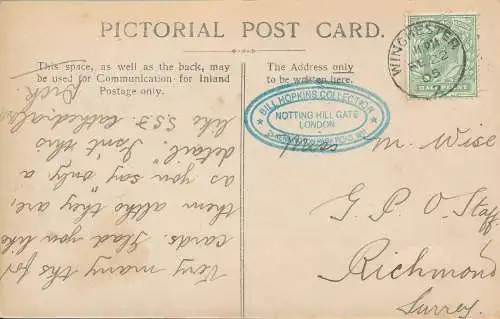 PICTORIAL POST CARD.
This space, as well as the back, may
be used for Communication for Inland
Postage only.
The Address only
to be written here.
WINCHESTER
05
HALFPENNY
BILL HOPKINS COLLECTION
NOTTING HILL GATE
LONDON
Miss M. Wise
G. P. O Staff
Richmond
Surrey.
Very many ths for
cards. Glad you like
them altho they are,
as you say only a
detail. Isn't this
like S.S.J. Cathedral
Dick